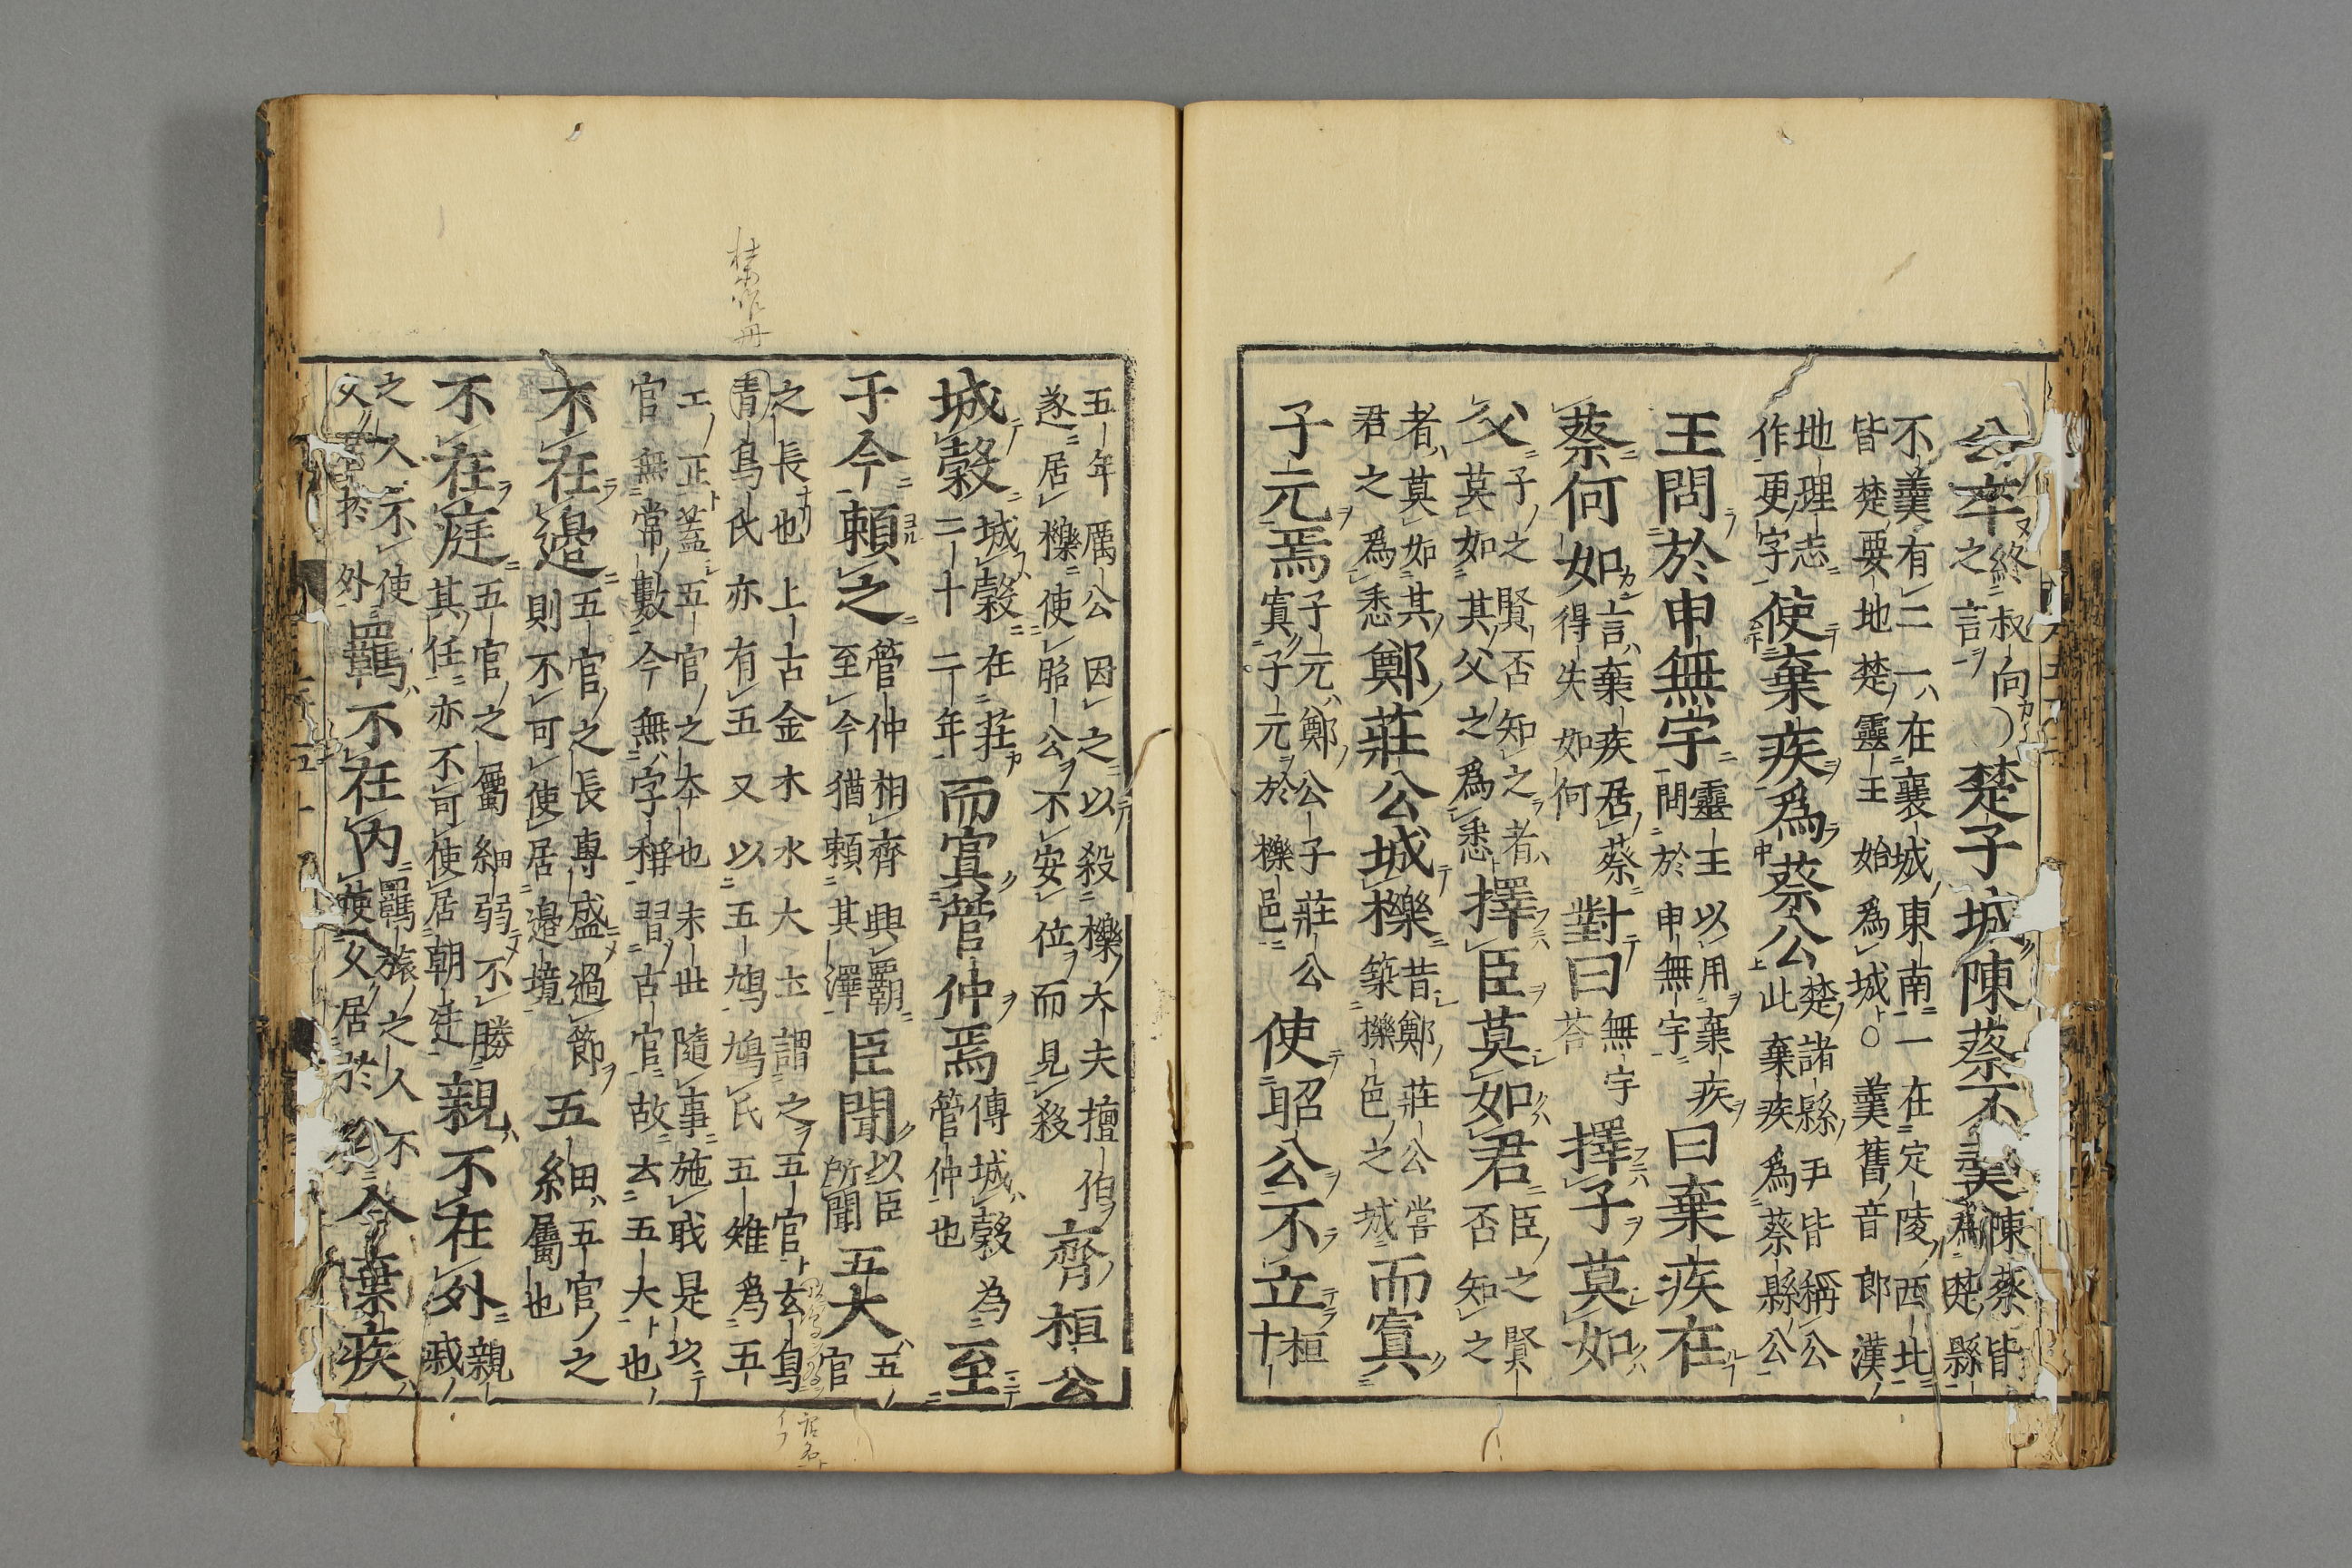 公卒終叔向
之言
楚子城陳蔡不羹陳蔡皆
為楚縣
不羹有二一在襄城東南一在定陵西北
皆楚要地楚靈王始爲城○羹舊音郎漢
地理志
作更字
使棄疾爲蔡公楚諸縣尹皆稱公
此棄疾爲蔡縣公
王問於申無宇靈王以用棄疾
問於申無宇
曰棄疾在
蔡何如言棄疾君蔡
得失如何
對曰無宇
荅
擇子莫如
父子之賢否知之者
莫如其父之爲悉
擇臣莫如君臣之賢
否知之
者莫如其
君之爲悉
鄭莊公城櫟昔鄭莊公嘗
築櫟邑之城
而寘
子元焉子元鄭公子莊公
寘子元於櫟邑
使昭公不立桓
十
五年厲公因之以殺櫟大夫擅伯
遂居櫟使昭公不安位而見殺
齊桓公
城穀城穀在莊
三十二年
而寘管仲焉傳城穀為
管仲也
至
于今賴之管仲相齊興霸
至今猶賴其澤
臣聞以臣
所聞
五大五
官
之長也上古金木水火土謂之五官玄鳥
青鳥氏亦有五又以五鳩鳩氏五雉爲五
工正蓋五官之本也末世隨事施職是以
官無常數今無字稱習古官故云五大也
不在邊五官之長專盛過節
則不可使居邊境
五細五官之
屬也
不在庭五官之屬細弱不勝
其任亦不可使居朝廷
親不在外親
戚
之人不使
父居於外
羈不在内羈旅之人不
使父居於内
今棄疾
杜安作丹